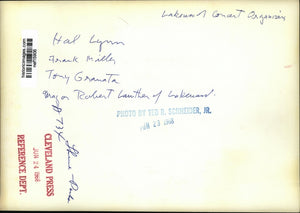 Lakewood Concert Organizers
Hal Lynn
Frank Miller
Tony Granata
Mayor Robert Lawther of Lakewood
PHOTO BY TED R. SCHNEIDER, JR.
JAN 23 1968
CLEVELAND PRESS
JAN 24 1968
REFERENCE DEPT.